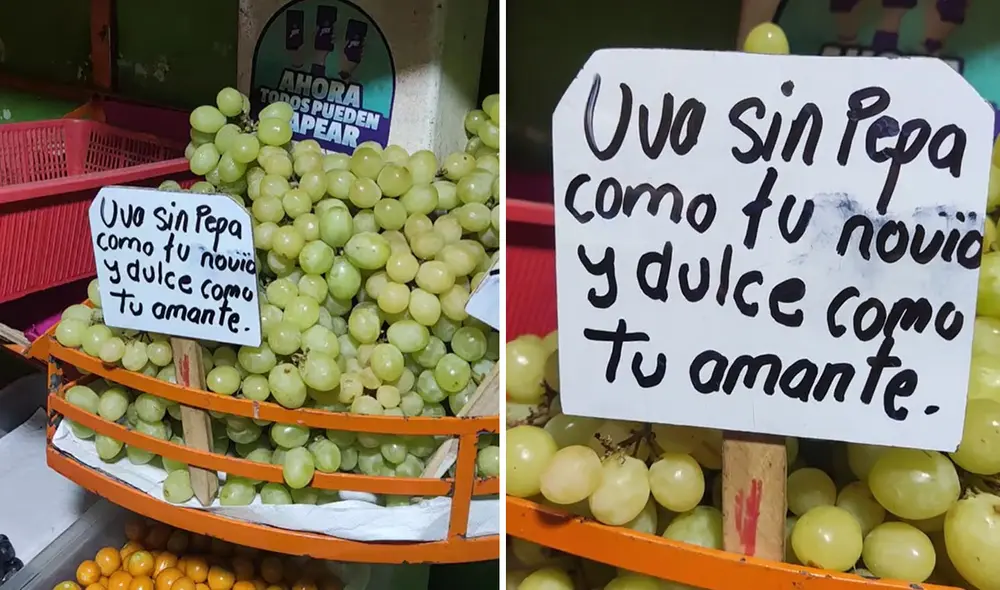 AHORA
TODOS PUEDEN
APEAR
Uva sin Pepa
como tu novio
y dulce como
Tu amante.
Uva sin Pepa
como tu novio
y dulce como
Tu amante.